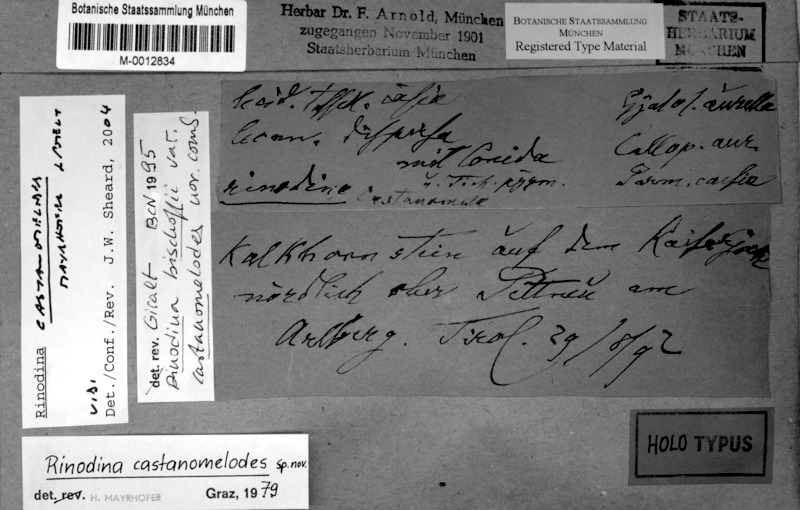 Botanische Staatssammlung München
M-0012834
Herbar Dr. F. Arnold, München
zugegangen November 1901
Staatsherbarium München
BOTANISCHE STAATSSAMMLUNG
MÜNCHEN
Registered Type Material
STAATS-
HERBARIUM
MÜNCHEN
Lecan. dispersa
mit Conida
rinodina castanomela
Gyalol. aurella
Callop. aur.
Parm. caesia
Kalkhornstein auf dem Kaiserjoch
nördlich ober Pettneu am
Arlberg. Tirol. 29/8/92
Rinodina CASTANOMELODES
MAYRHOFER & POELT
v.s.
Det./Conf./Rev. J.W. Sheard, 2004
det. rev. Giralt BCN 1995
Rinodina bischoffii var.
castanomelodes nov. comb.
Rinodina castanomelodes sp. nov.
det. rev. H. MAYRHOFER Graz, 1979
HOLOTYPUS